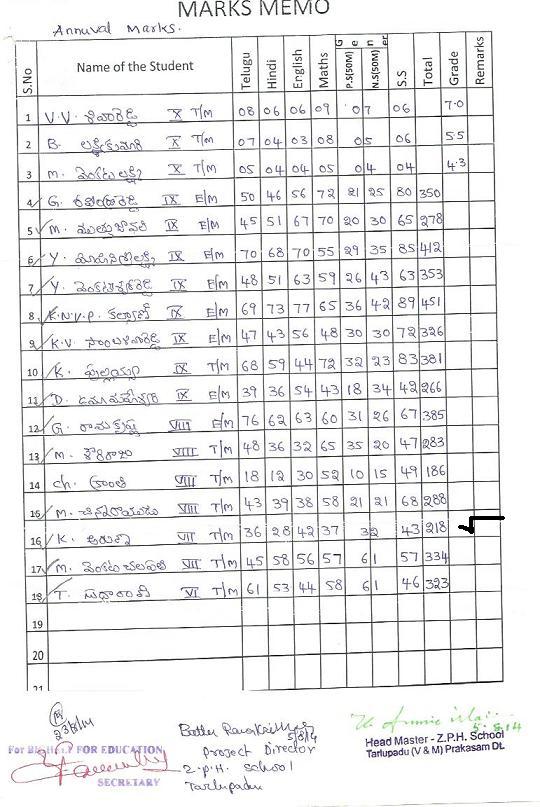 MARKS MEMO
Annuval Marks.
S.No Name of the Student Telugu Hindi English Maths P.S(50M) Gener N.S(50M) S.S Total Grade Remarks
1 V.V. శివారెడ్డి X T/M 08 06 06 09 07 06 7.0
2 B. లక్ష్మీకుమారి X T/M 07 04 03 08 05 06 5.5
3 M. వెంకటలక్ష్మి X T/M 05 04 05 05 04 04 4.3
4 G. IX E/M 50 46 56 72 21 25 80 350
5 M. IX E/M 45 51 67 70 20 30 65 278
6 Y. IX E/M 70 68 70 55 29 35 85 412
7 Y. IX E/M 48 51 63 59 26 43 63 353
8 K.N.V.P. కళ్యాణ్ IX E/M 69 73 77 65 36 42 89 451
9 K.V. సాంబశివారెడ్డి IX E/M 47 43 56 48 30 30 72 326
10 K. పుల్లయ్య IX T/M 68 59 44 72 32 23 83 381
11 D. ఉమామహేశ్వరి IX E/M 39 36 54 43 18 34 42 266
12 G. రామకృష్ణ VIII E/M 76 62 63 60 31 26 67 385
13 M. శౌరిరాజు VIII T/M 48 36 32 65 35 20 47 283
14 Ch. క్రాంతి VIII T/M 18 12 30 52 10 15 49 186
15 M. చినరాయుడు VIII T/M 43 39 38 58 21 21 68 288
16 K. అరుణ VII T/M 36 28 42 37 32 43 218
17 M. వెంకటచలపతి VII T/M 45 58 56 57 61 57 334
18 T. సుధారాణి VI T/M 61 53 44 58 61 46 323
19
20
21
23/8/14
For FOR EDUCATION
SECRETARY
5/8/14
Project Director
Z.P.H. School
Tarlupadu
5.8.14
Head Master - Z.P.H. School
Tarlupadu (V & M) Prakasam Dt.